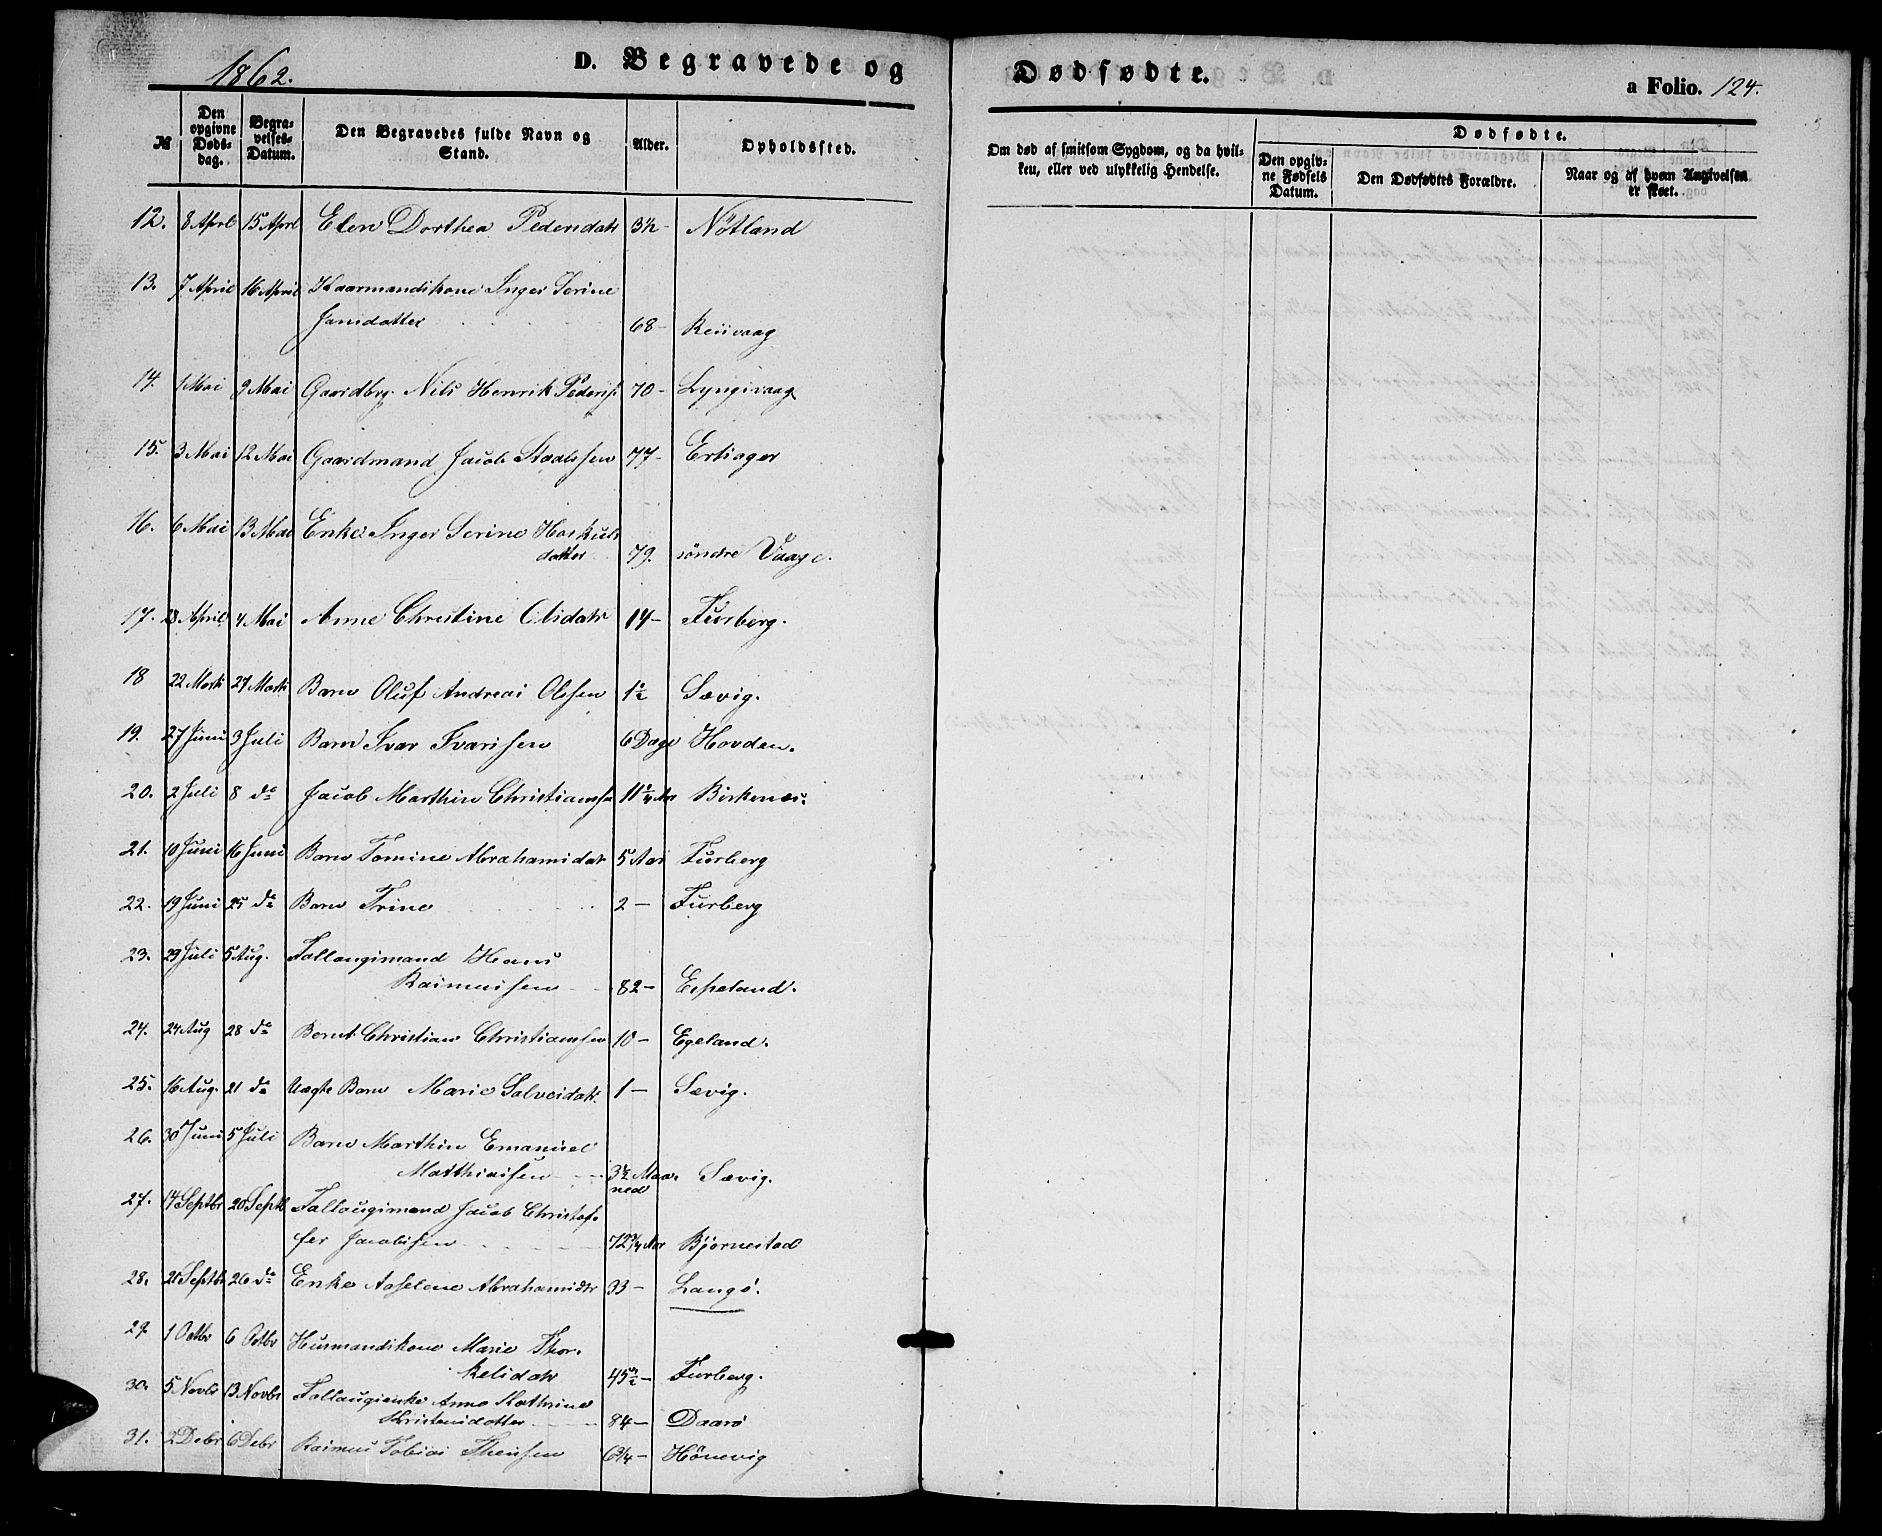 1862.
D. Begravede og
Dødfødte.
a Folio. 124.
№
Den opgivne Døds-dag.
Begra-velses-Datum.
Den Begravedes fulde Navn og Stand.
Alder.
Opholdssted.
Om død af smitsom Sygdom, og da hvil-ken, eller ved ulykkelig Hendelse.
Dødfødte.
Den opgiv-ne Fødsels Datum.
Den Dødfødtes Forældre.
Naar og af hvem Angivelsen er skeet.
12. 8 April 15 April Elen Dorthea Pedersdatr 3½ - Nötland
13. 7 April 16 April Kaarmandskone Inger Serine
Jansdatter 68 - Reiivaag
14. 1 Mai 9 Mai Gaardbrg. Nils Henrik Peders. 70 - Lyngsvaag
15. 3 Mai 12 Mai Gaardmand Jacob Staalesen 77 - Ertzager
16. 6 Mai 13 Mai Enke Inger Serine Haskuls
datter 79. söndre Vaage.
17. 28 April 4 Mai Anne Christine Olsdatr 14 - Furberg.
18 22 Marts 27 Marts Barn Oluf Andreas Olsen 1½ Sævig.
19. 27 Juni 3 Juli Barn Ivar Ivarsen 6 Dage Hovden.
20. 2 Juli 8 do Jacob Marthin Christiansen 11 Aar Birkenæs.
21. 10 Juni 16 Juni Barn Tomine Abrahamsdatr 5 Aar Furberg
22. 19 Juni 25 do Barn Trine 2 - Furberg
23. 29 Juli 5 Aug. Follaugsmand Hans
Rasmussen 82 - Espeland.
24. 24 Aug 28 do Bernt Christian Christiansen 10 - Egeland.
25. 16 Aug. 21 do Uægte Barn Marie Salvesdatr. 1 - Sævig.
26. 30 Juni 5 Juli Barn Marthin Emanuel
Matthiassen 3½ Maaned Sævig.
27. 14 Septbr 20 Septb Follaugsmand Jacob Christof-
fer Jacobsen 72¾ Aar Bjørnestad
28. 20 Septbr 26 do Enke Aaselene Abrahamsdtr 33 - Langö.
29. 1 Octbr 6 Octbr Husmandskone Marie Thor-
kelsdatr 45½ - Furberg.
30. 5 Novbr 13 Novbr Follaugsenke Anne Kathrine
Kristensdatter 84 - Daarö
31. 2 Debr 6 Debr Rasmus Tobias Theisen 6¼ - Hönevig